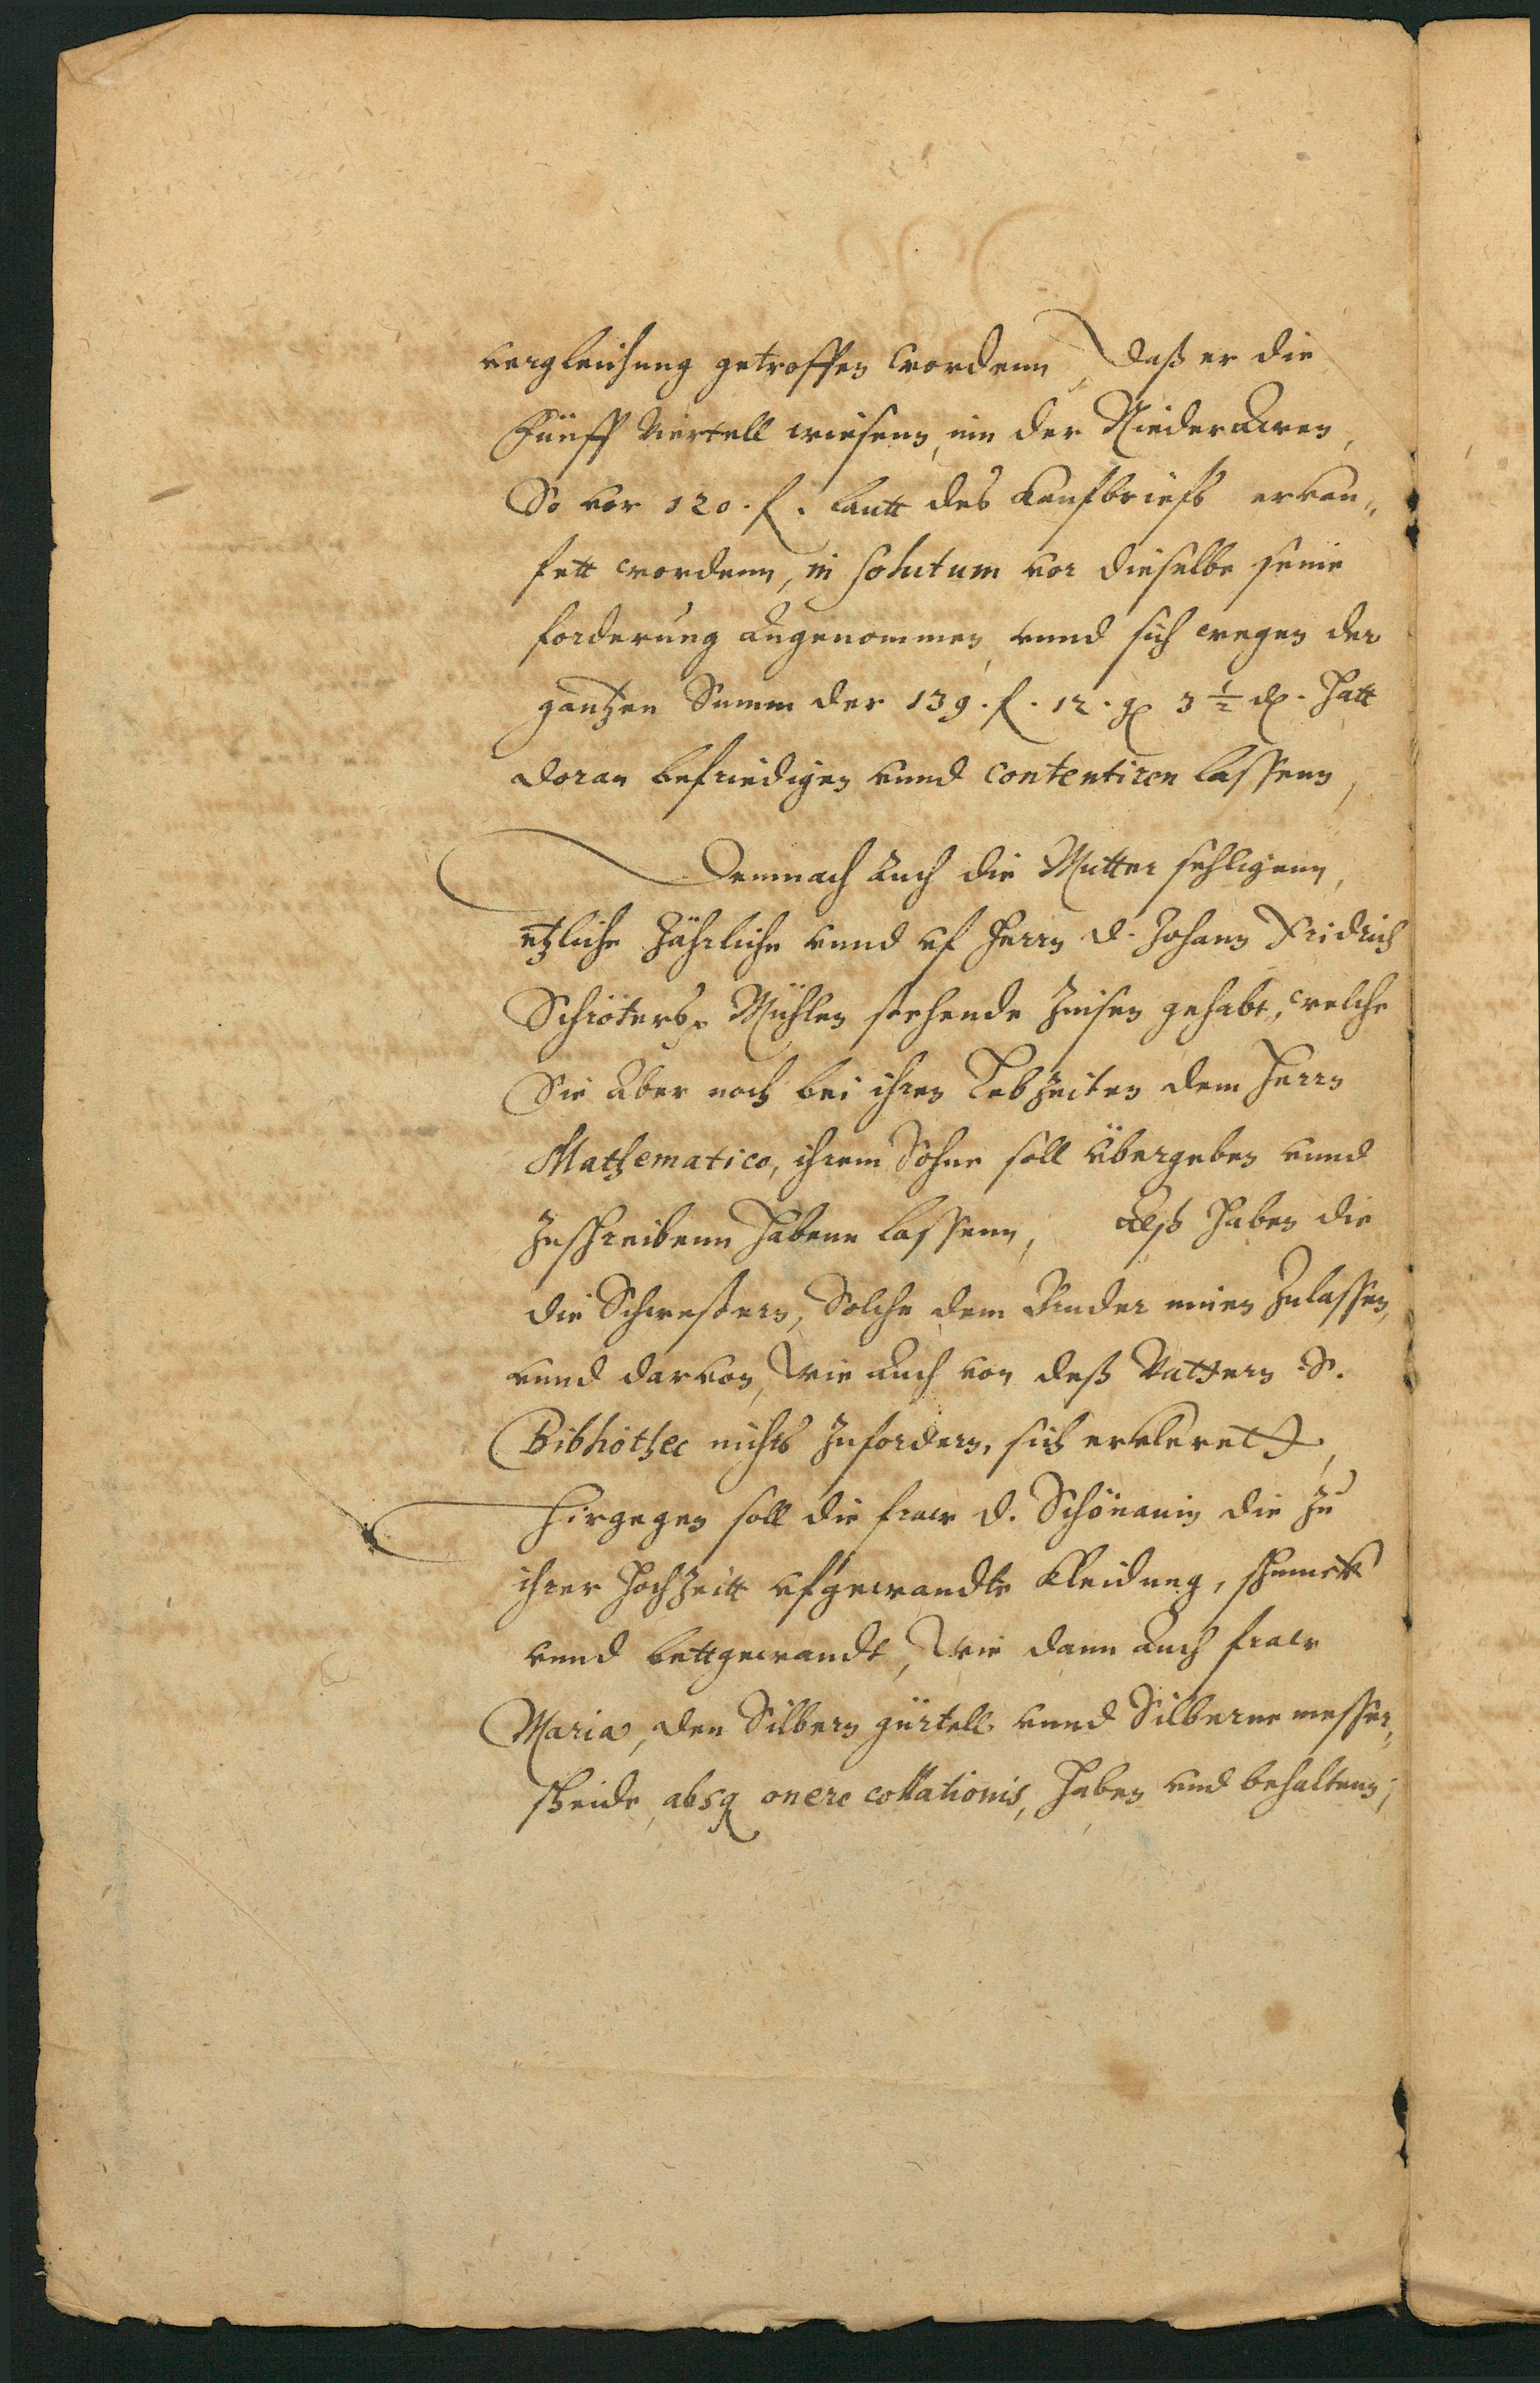 vergleichung getroffen wordenn, daß er die
Fünff Viertell wiesenn, inn der Niederawen,
So vor 120. f. lautt des Kaufbriefs erkau„
fett wordenn, in solutum vor dieselbe seine
forderung angenommen, vnnd sich wegen der
gantzen Summ der 139. f. 12. g 3 ½ d. hatt
doran befriedigen vnnd contentiren lassenn,
Demnach auch die Mutter sehligenn,
etzliche Jährliche vnnd vf Herrn D. Johann Fridrich
Schröters Mühlen stehende Zinsen gehabt, welche
Sie aber noch bei ihren Lebzeiten dem Herrn
Mathematico, ihrem Sohne soll übergeben vnnd
zuschreibenn habenn lassenn, Alß haben die
die Schwestern, Solche dem Bruder einen zulassen,
vnnd darvon, wie auch von deß Vattern S.
Bibliothec nichts zufordern, sich erklerett,
Hirgegen soll die fraw D. Schönauin die zu
ihrer hochzeitt vfgewandte Kleidung, schmuck
vnnd bettgewandt, wie dann auch fraw
Maria, den Silbern gürtell vnnd Silberne messer„
scheide, absq onere collationis, haben vnd behaltenn;